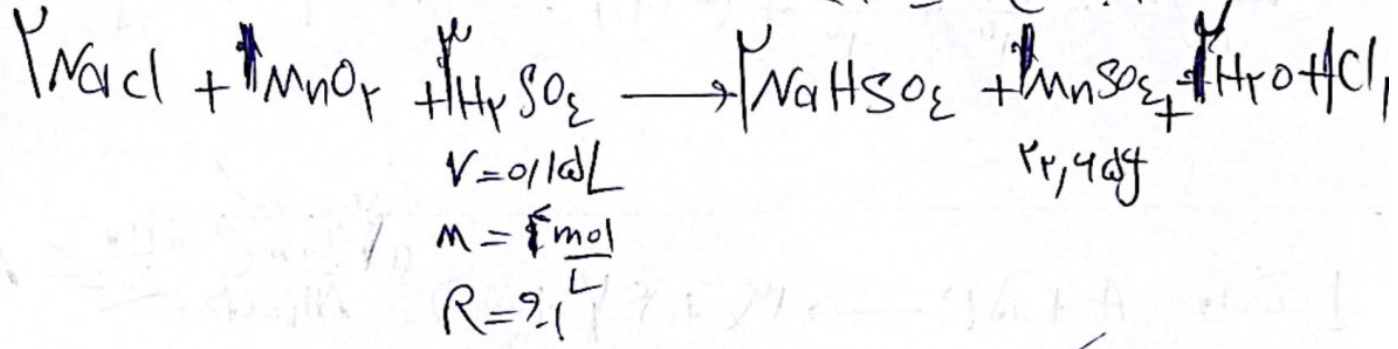 ۲NaCl + ۱MnO۲ + ۳H۲SO۴ ⟶ ۲NaHSO۴ + ۱MnSO۴ + ۲H۲O + ۱Cl۲
V = ۰/۱۵L
M = ۴ mol/L
R = ?٪
۲۲,۶۵g